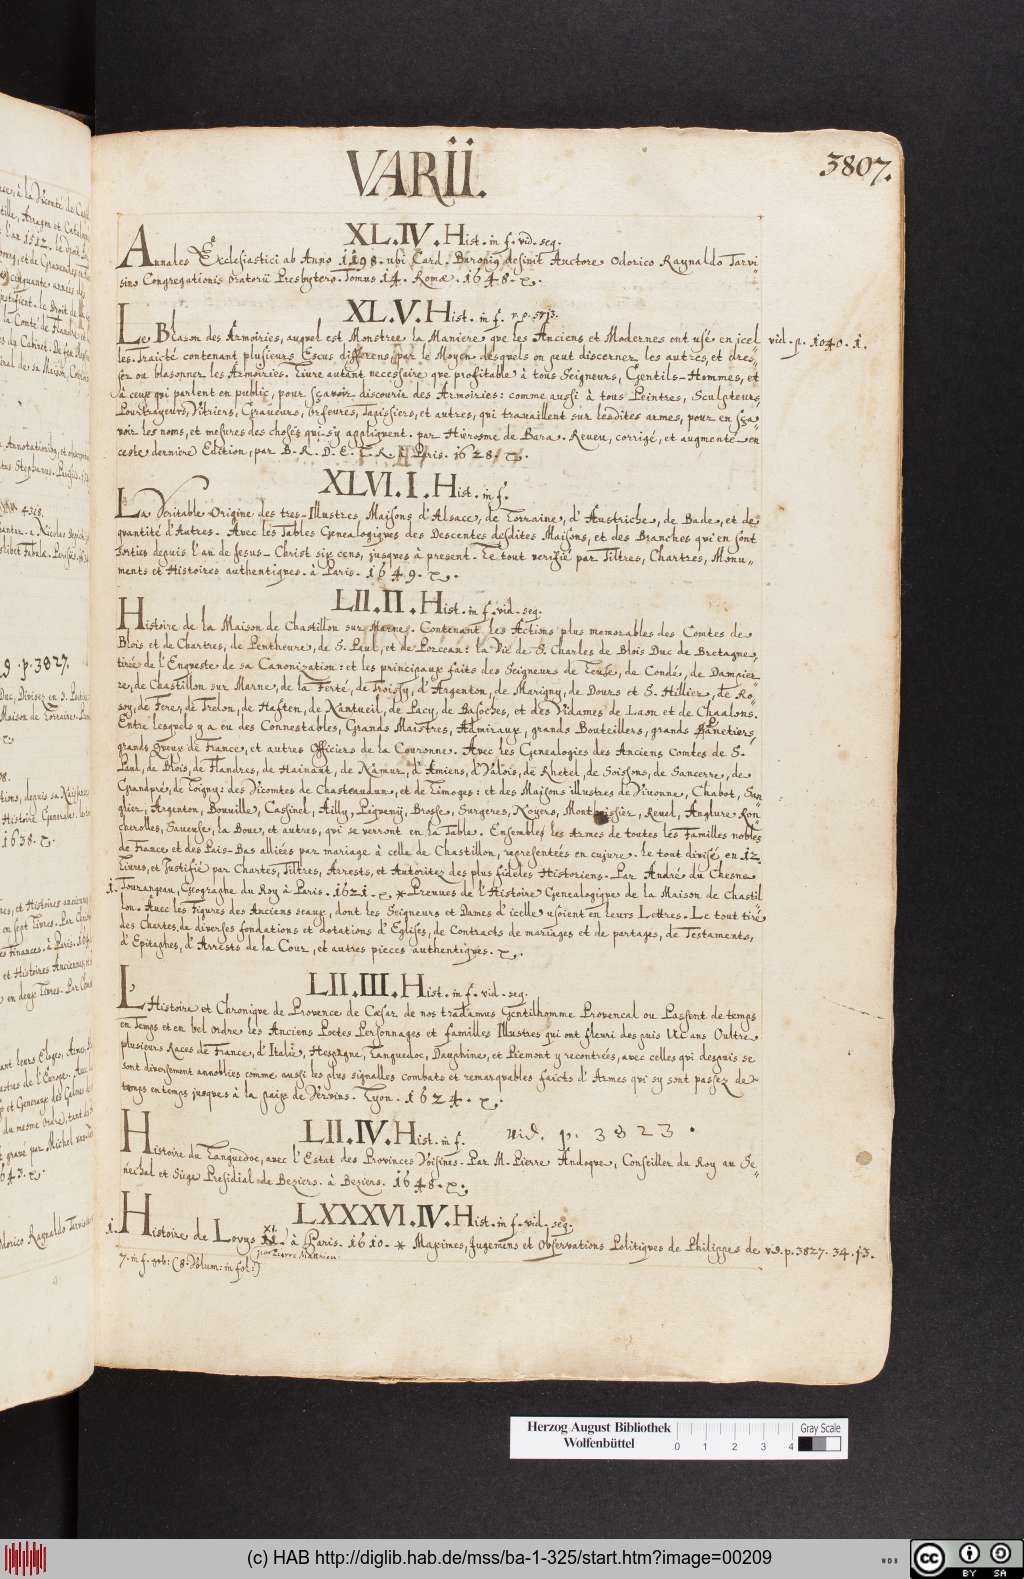 VARII.
3807.
XL.IV. Hist. in f. vid. seq.
Annales Ecclesiastici ab Anno 1198. ubi Card. Baronig desinit Auctore Odorico Raynaldo Tarvi=
sino Congregationis Oratorii Presbytero. Tomus 14. Romæ. 1648.
XL.V. Hist. in f.
Le Blason des Armoiries, auquel est Monstree la Maniere que les Anciens et Modernes ont usé en icel= vid. p. 1040. 1.
les. Traicté contenant plusieurs Escus differens, par le Moyen desquels on peut discerner les autres, et dres=
ser ou blasonner les Armoiries. Livre autant necessaire que profitable à tous Seigneurs, Gentils-Hommes, et
à ceux qui parlent en public, pour sçavoir discourir des Armoiries: comme aussi à tous Peintres, Sculpteurs,
Pourtrayeurs, Vitriers, Graveurs, Orfevres, Tapissiers, et autres, qui travaillent sur lesdites armes, pour en sça=
voir les noms, et mesures des choses qui s'y appliquent. par Hierosme de Bara. Reveu, corrigé, et augmenté en
ceste derniere Edition, par B. R. D. E. L. R. à Paris. 1628.
XLVI.I. Hist. in f.
La Veritable Origine des tres-Illustres Maisons d'Alsace, de Lorraine, d'Austriche, de Bade, et de
quantité d'Autres. Avec les Tables Genealogiques des Descentes desdites Maisons, et des Branches qui en sont
sorties depuis l'an de Jesus-Christ six cens, jusques à present. Le tout verifié par Tiltres, Chartres, Monu=
ments et Histoires authentiques. à Paris. 1649.
LII.II. Hist. in f. vid. seq.
Histoire de la Maison de Chastillon sur Marne. Contenant les Actions plus memorables des Comtes de
Blois et de Chartres, de Penthevre, de S. Paul, et de Porcean: la Vie de S. Charles de Blois Duc de Bretagne,
tirée de l'Enqueste de sa Canonization: et les principaux faits des Seigneurs de Leuse, de Condé, de Dampier=
re, de Chastillon sur Marne, de la Ferté, de Troissy, d'Argenton, de Marigny, de Dours et S. Hillier, de Ro=
soy, de Fere, de Trelon, de Hasten, de Nantueil, de Pacy, de Basoches, et des Vidames de Laon et de Chaalons.
Entre lesquels y a eu des Connestables, Grands Maistres, Admiraux, grands Bouteillers, grands Panetiers,
grands Queux de France, et autres Officiers de la Couronne. Avec les Genealogies des Anciens Comtes de S.
Paul, de Blois, de Flandres, de Hainaut, de Namur, d'Amiens, d'Valois, de Rhetel, de Soissons, de Sancerre, de
Grandpré, de Loigny: des Vicomtes de Chasteaudun, et de Limoges: et des Maisons illustres de Vivonne, Chabot, San=
glier, Argenton, Bouville, Cassinel, Ailly, Piqueny, Brosses, Surgeres, Noyers, Montboissier, Revel, Anglure Ron=
cherolles, Saveuse, la Bove, et autres, qui se verront en la Table. Ensembles les Armes de toutes les Familles nobles
de France et des Pais-Bas alliées par mariage à celle de Chastillon, representées en cuivre. le tout divisé en 12.
Livres, et Justifié par Chartes, Tiltres, Arrests, et Autoritez des plus fideles Historiens. Par André du Chesne
1. Tourangeau, Geographe du Roy à Paris. 1621. * Preuves de l'Histoire Genealogique de la Maison de Chastil
lon. Avec les Figures des Anciens sceaux, dont les Seigneurs et Dames d'icelle usoient en leurs Lettres. Le tout tiré
des Chartes, de diverses fondations et dotations d'Eglises, de Contracts de mariages et de partages, de Testaments,
d'Epitaphes, d'Arrests de la Cour, et autres pieces authentiques.
LII.III. Hist. in f. vid. seq.
L'Histoire et Chronique de Provence de Cæsar de nostradamus Gentilhomme Provencal ou Passent de temps
en Temps et en bel ordre les Anciens Poetes Personnages et familles Illustres qui ont fleuri depuis VIC ans Oultre
plusieurs Races de France, d'Italie, Hespagne, Languedoc, Dauphine, et Piemont y recontrées, avec celles qui depuis se
sont diversement annoblies comme aussi les plus signalles combats et remarquables faicts d'Armes qui sy sont passez de
temps en temps jusques à la paix de Vervins. Lyon. 1624.
LII.IV. Hist. in f. vid. p. 3823.
Histoire du Languedoc, avec l'Estat des Provinces Voisines. Par M. Pierre Andoque, Conseiller du Roy au Se=
neschal et Siege Presidial de Beziers. à Beziers. 1648.
LXXXVI.IV. Hist. in f. vid. seq.
1. Histoire de Lovys XI. à Paris. 1610. * Maximes, Jugemens et Observations Politiques de Philippes de vid. p. 3827. 34. f3.
par Pierre Matthieu
7. in f. gob: (8. Volum: in fol:)
Herzog August Bibliothek
Wolfenbüttel
0 1 2 3 4
Gray Scale
(c) HAB http://diglib.hab.de/mss/ba-1-325/start.htm?image=00209
WDB
cc BY SA